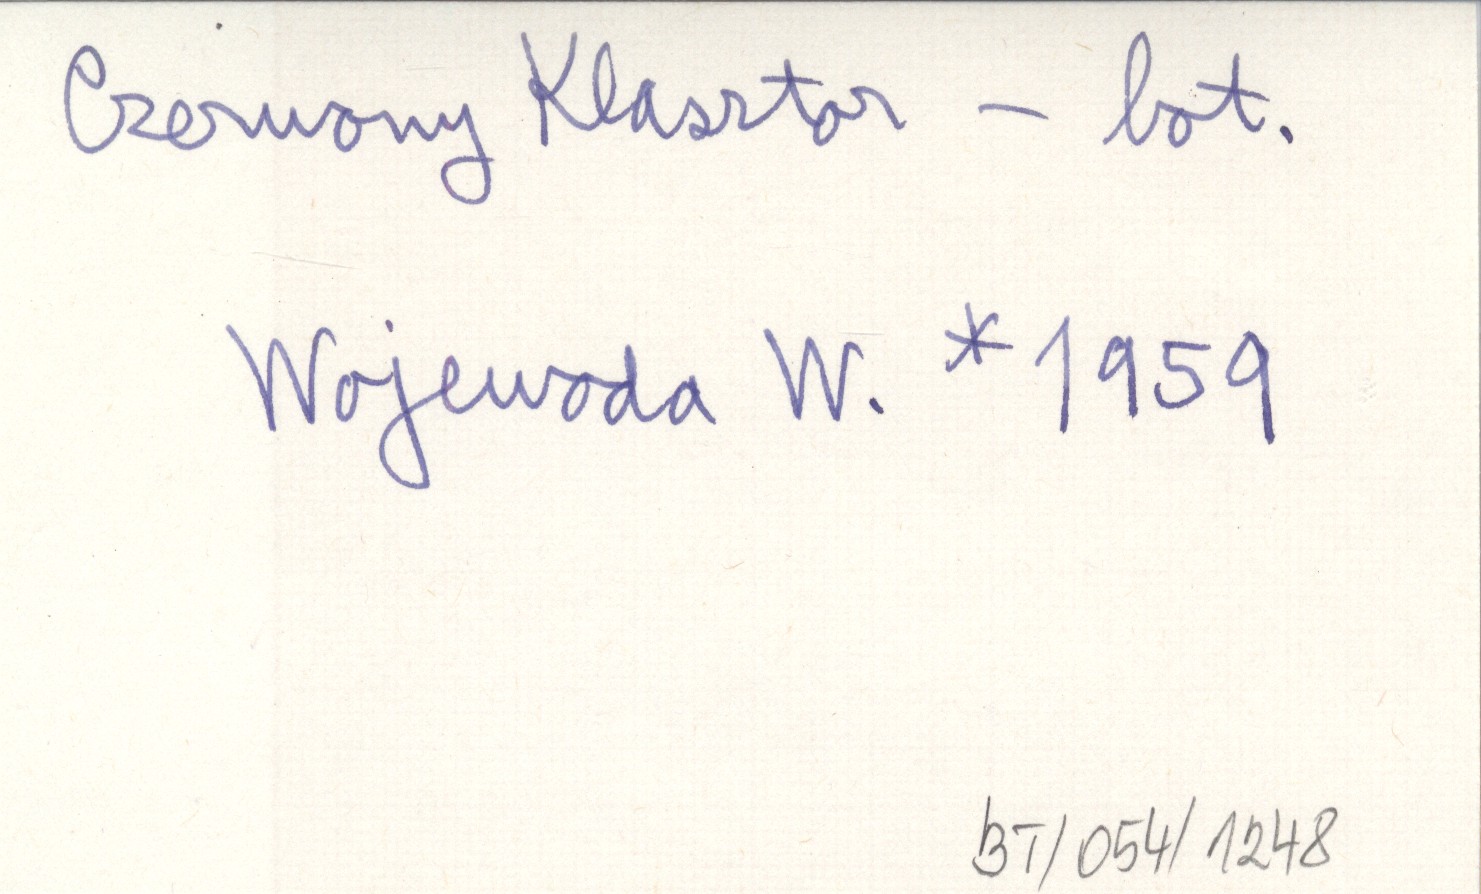 Czerwony Klasztor – bot.
Wojewoda W. * 1959
BT/054/1248